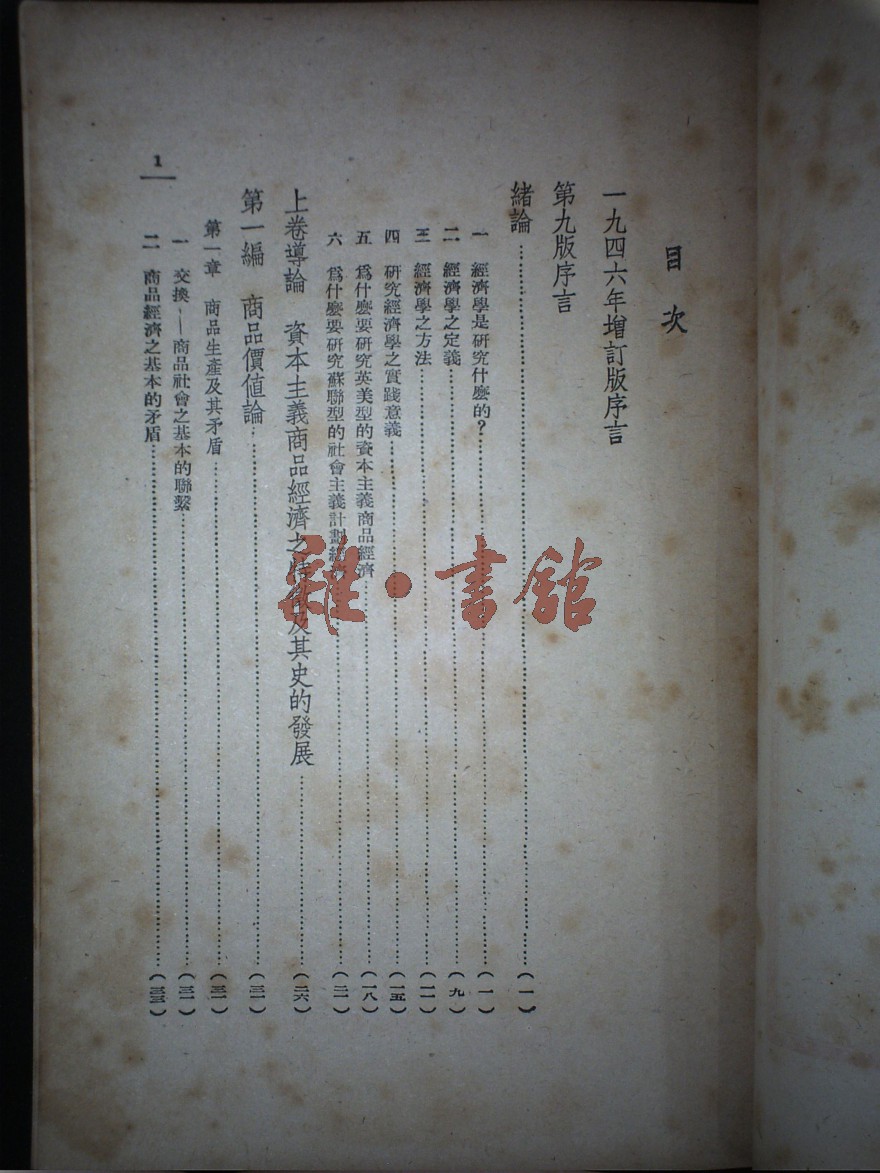 目次
一九四六年增訂版序言
第九版序言
緒論……(一)
一 經濟學是研究什麼的？……(一)
二 經濟學之定義……(九)
三 經濟學之方法……(一一)
四 研究經濟學之實踐意義……(一五)
五 爲什麼要研究英美型的資本主義商品經濟……(一八)
六 爲什麼要研究蘇聯型的社會主義計劃經濟……(二一)
上卷導論 資本主義商品經濟之特徵及其史的發展……(二六)
第一編 商品價値論……(三一)
第一章 商品生產及其矛盾……(三一)
一 交換——商品社會之基本的聯繫……(三一)
二 商品經濟之基本的矛盾……(三三)
1
雜·書館